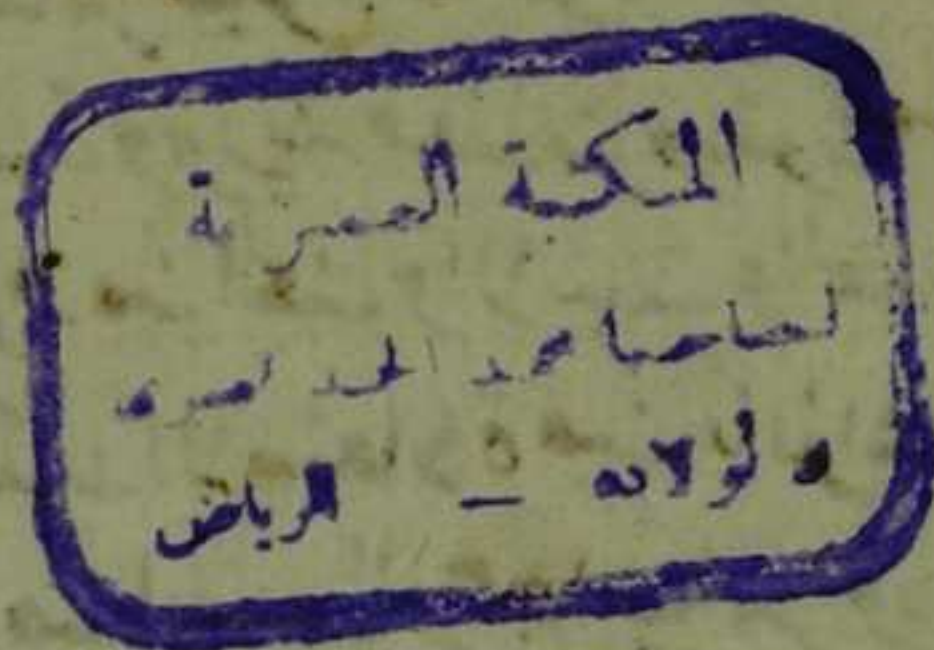 المكتبة العمرية
لصاحبها محمد الحمد العمري
وأولاده - الرياض